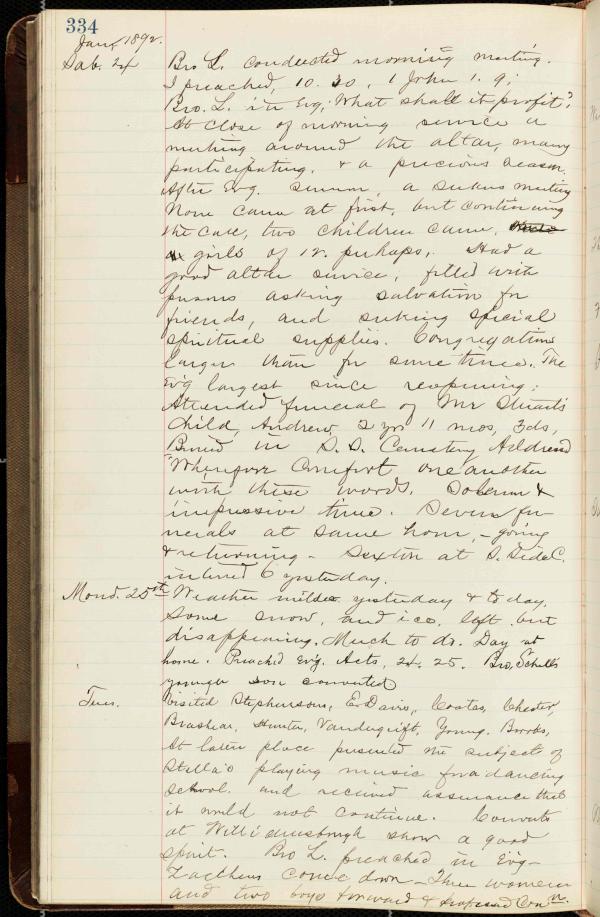 334
Jan, 1892.
Sab. 24 Bro L. conducted morning meeting.
I preached, 10.30, 1 John 1.9;
Bro. L. in Evg; What shall it profit?
At close of morning service a
meeting around the altar, many
participating. & a precious season.
After Evg. sermon, a seekers meeting
None came at first, but continuing
the call, two children came,
girls of 12. perhaps,. Had a
good altar service, filled with
persons asking salvation for
friends, and seeking special
spiritual supplies. Congregations
larger than for some time. The
Ev'g largest since reopening;
Attended funeral of Mr Stuart's
Child, Andrew 2 yrs 11 mos, 3 ds,
Buried in S. S. Cemetery Address
"Wherefore Comfort one another
with these words. Solemn &
impressive time. Seven fu-
nerals at same hour, - going
& returning - Sexton at S. Side C.
interred 6 yesterday.
Mond. 25th Weather milder yesterday & to day.
Some snow, and ice left but
disappearing. Much to do. Day at
home. Preached Ev'g. Acts, 24. 25. Bro, Schell's
younger son converted
Tues. Visited Stephenson, E. Davis, Coates, Chester,
Brashear, Hunter, Vandegrift, Young, Brooks,
At later place presented the subject of
Stella's playing music for a dancing
school. and received assurance that
it would not continue. Converts
at Williamsburgh show a good
spirit. Bro L. preached in Ev'g -
Zaccheus come down - Three women
and two boys forward & professed Con n.